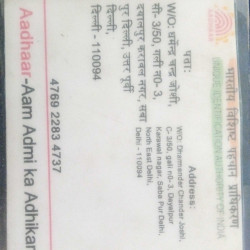 भारतीय विशिष्ट पहचान प्राधिकरण
IDENTIFICATION AUTHORITY OF INDIA
पता:
W/O: धर्मेन्द्र चन्द्र जोशी,
सी- 3/50, गली न0- 3,
दयालपुर करावल नगर, सबा
पुर दिल्ली, उत्तर पूर्वी
दिल्ली,
दिल्ली - 110094
Address:
W/O: Dharmander Chander Joshi,
3/50, gali n0-3, Dayalpur
Karawal nagar, Saba Pur Delhi
North East Delhi,
Delhi - 110094
4769 2283 4737
Aadhaar-Aam Admi ka Adhikar